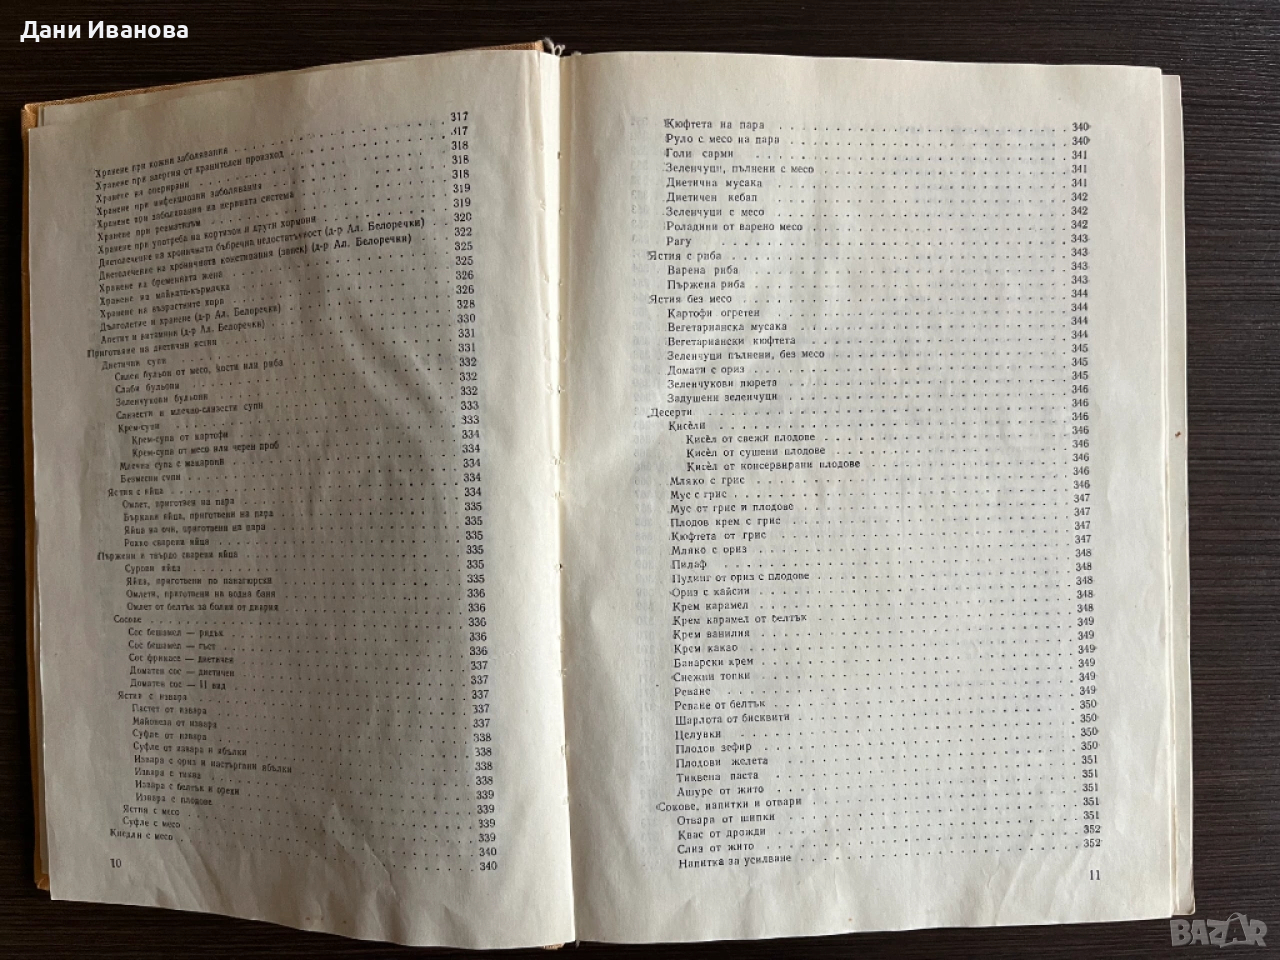 Дани Иванова
Хранене при кожни заболявания 317
Хранене при алергия от хранителен произход 317
Хранене на оперирани 318
Хранене при инфекциозни заболявания 318
Хранене при заболявания на нервната система 318
Хранене при ревматизъм 319
Хранене при употреба на кортизон и други хормони 319
Диетолечение на хроничната бъбречна недостатъчност (д-р Ал. Белоречки) 320
Диетолечение на хроничната констипация (запек) (д-р Ал. Белоречки) 322
Хранене на бременната жена 325
Хранене на майката-кърмачка 325
Хранене на възрастните хора 326
Дълголетие и хранене (д-р Ал. Белоречки) 326
Апетит и витамини (д-р Ал. Белоречки) 328
Приготвяне на диетични ястия 330
Диетични супи 331
Силен бульон от месо, кости или риба 331
Слаби бульони 332
Зеленчукови бульони 332
Слизести и млечно-слизести супи 332
Крем-супи 333
Крем-супа от картофи 333
Крем-супа от месо или черен дроб 334
Млечна супа с макарони 334
Безмесни супи 334
Ястия с яйца 334
Омлет, приготвен на пара 334
Бъркани яйца, приготвени на пара 335
Яйца на очи, приготвени на пара 335
Рохко сварени яйца 335
Пържени и твърдо сварени яйца 335
Сурови яйца 335
Яйца, приготвени по панагюрски 335
Омлети, приготвени на водна баня 336
Омлет от белтък за болни от диария 336
Сосове 336
Сос бешамел — рядък 336
Сос бешамел — гъст 336
Сос фрикасе — диетичен 337
Доматен сос — диетичен 337
Доматен сос — II вид 337
Ястия с извара 337
Пастет от извара 337
Майонеза от извара 338
Суфле от извара 338
Суфле от извара и ябълки 338
Извара с ориз и настъргани ябълки 338
Извара с тиква 339
Извара с белтък и орехи 339
Извара с плодове 339
Ястия с месо 339
Суфле с месо 340
Кнедли с месо 340
10
Кюфтета на пара 340
Руло с месо на пара 340
Голи сарми 341
Зеленчуци, пълнени с месо 341
Диетична мусака 341
Диетичен кебап 342
Зеленчуци с месо 342
Роладини от варено месо 342
Рагу 343
Ястия с риба 343
Варена риба 343
Пържена риба 343
Ястия без месо 344
Картофи огретен 344
Вегетарианска мусака 344
Вегетариански кюфтета 344
Зеленчуци пълнени, без месо 345
Домати с ориз 345
Зеленчукови пюрета 345
Задушени зеленчуци 346
Десерти 346
Кисели 346
Кисел от свежи плодове 346
Кисел от сушени плодове 346
Кисел от консервирани плодове 346
Мляко с грис 346
Мус с грис 346
Мус от грис и плодове 347
Плодов крем с грис 347
Кюфтета от грис 347
Мляко с ориз 347
Пилаф 348
Пудинг от ориз с плодове 348
Ориз с кайсии 348
Крем карамел 348
Крем карамел от белтък 348
Крем ванилия 349
Крем какао 349
Баварски крем 349
Снежни топки 349
Реване 349
Реване от белтък 349
Шарлота от бисквити 350
Целувки 350
Плодов зефир 350
Плодови желета 350
Тиквена паста 351
Ашуре от жито 351
Сокове, напитки и отвари 351
Отвара от шипки 351
Квас от дрожди 351
Слиз от жито 352
Напитка за усилване 352
11
BAZAR